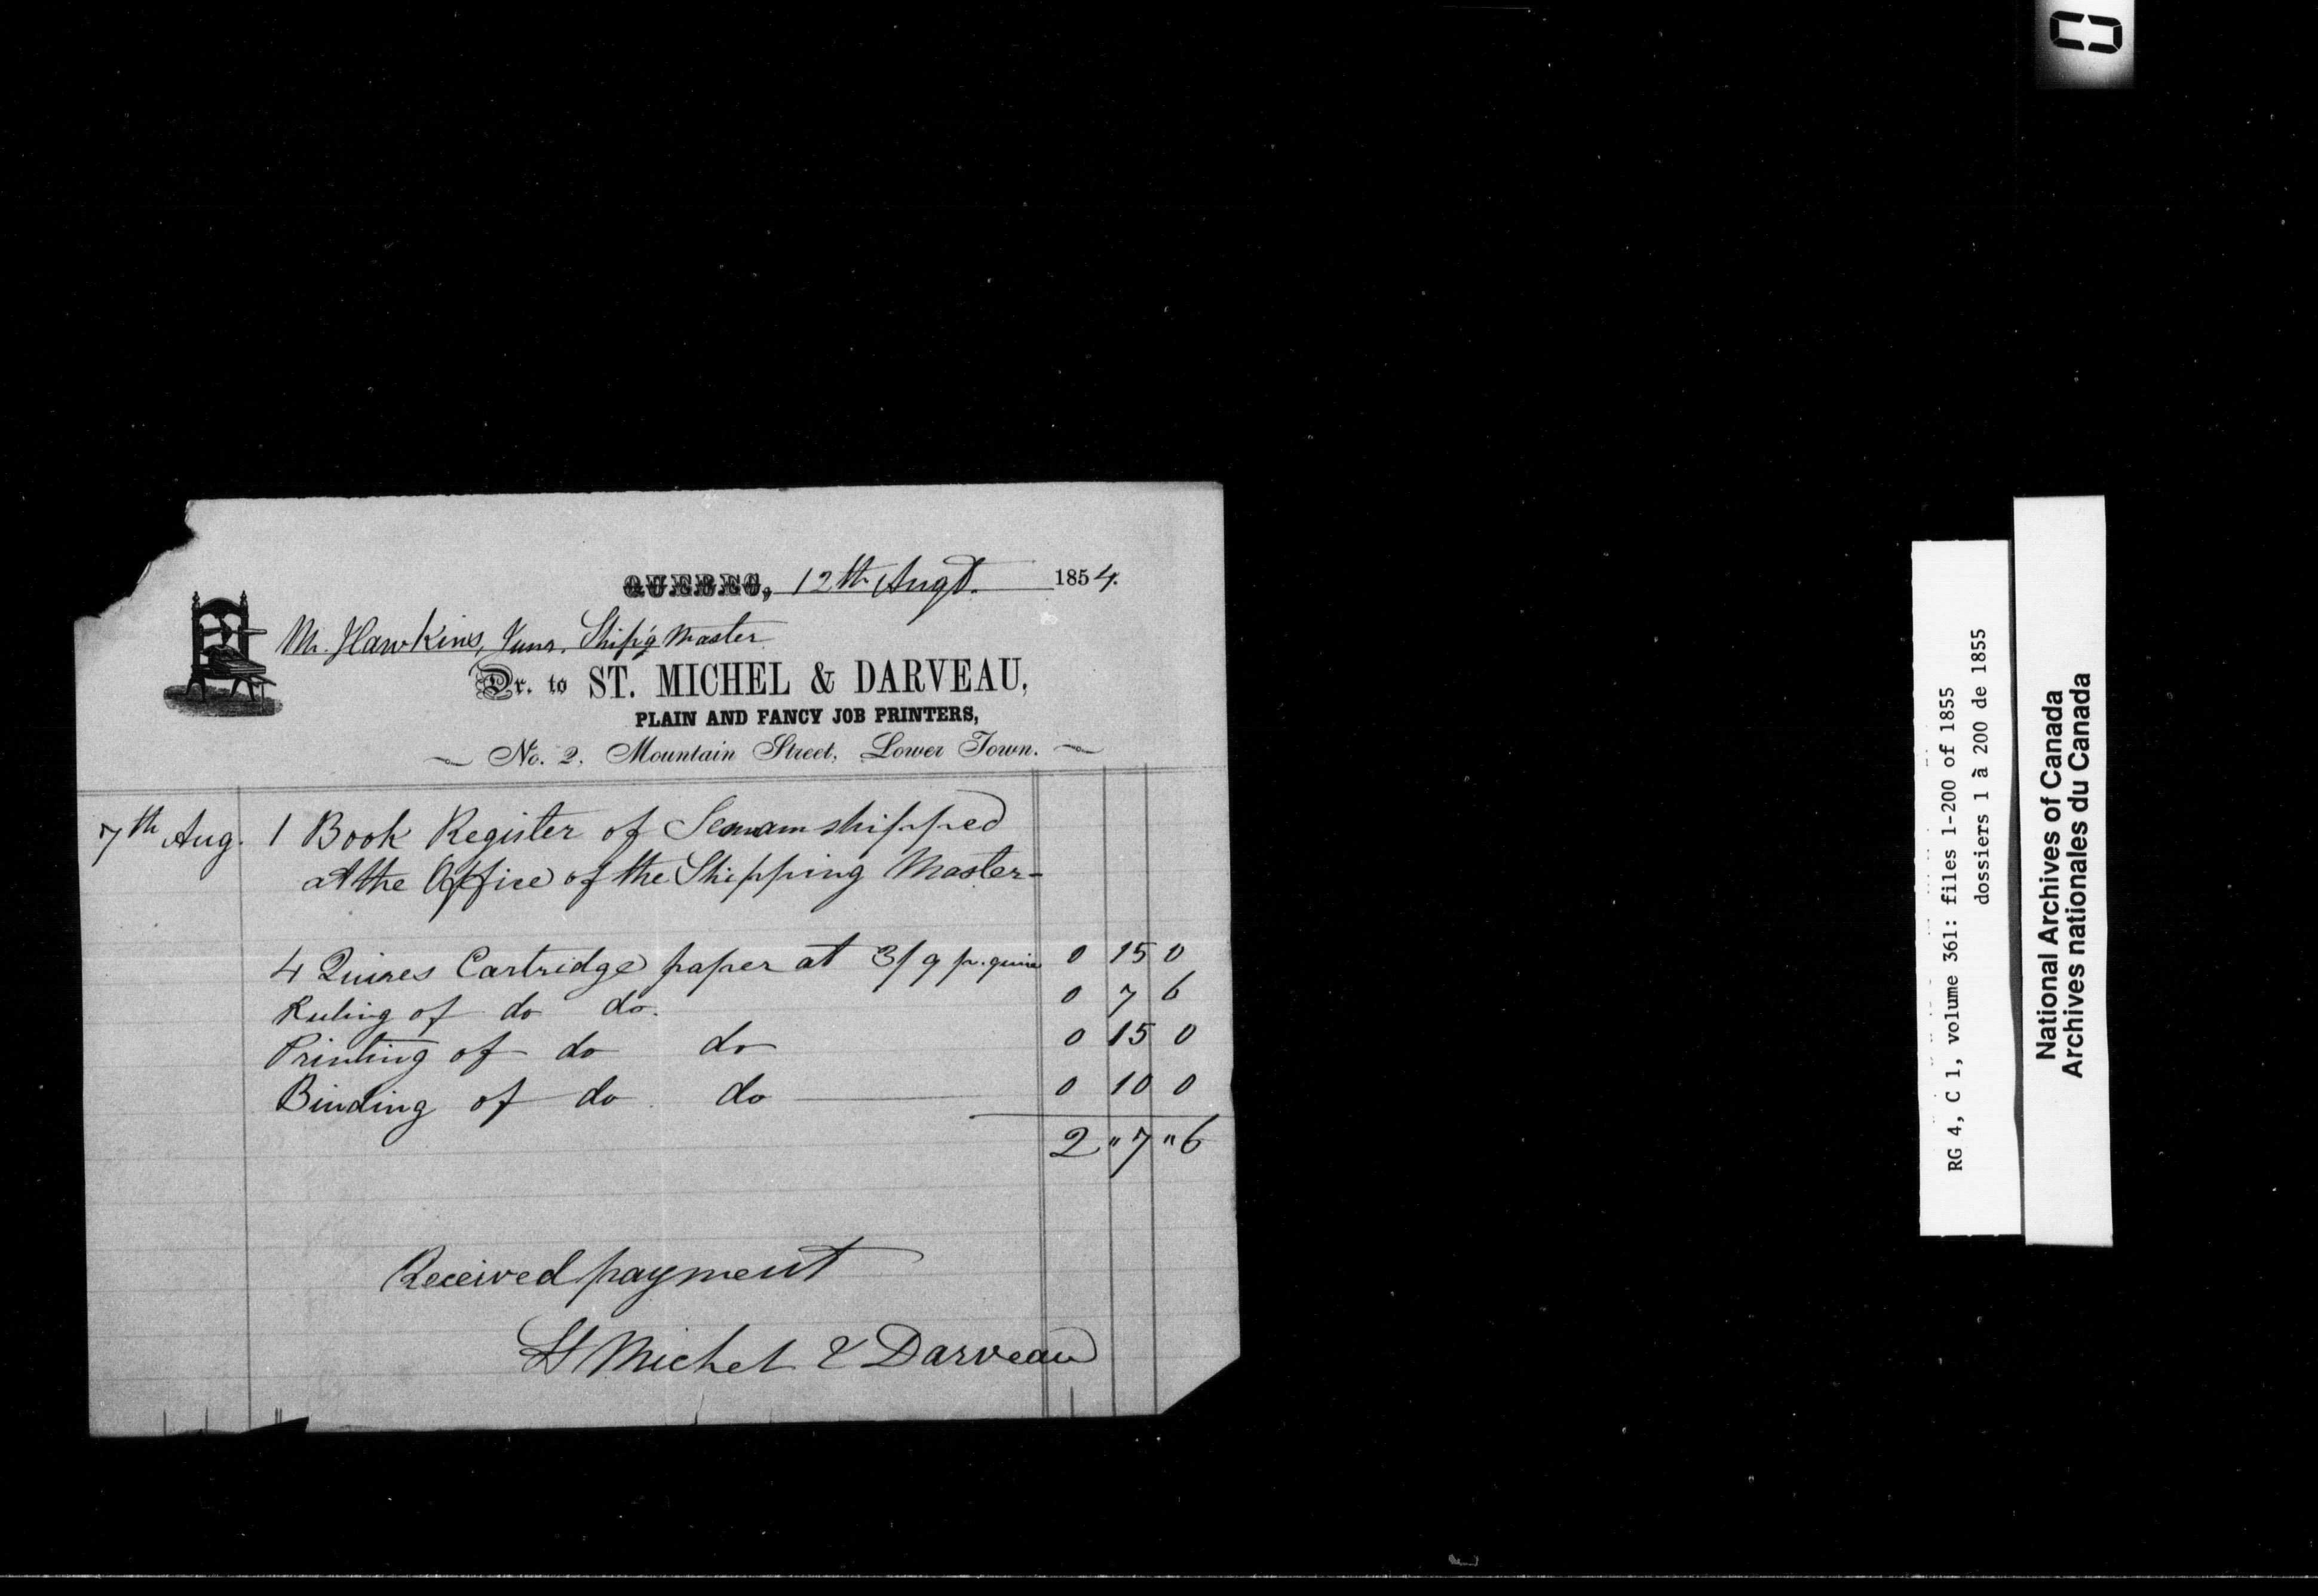 QUEBEC, 12th Augt. 1854.
Mr. Hawkins, Junr. Ship'g Master
Dr. to ST. MICHEL & DARVEAU,
PLAIN AND FANCY JOB PRINTERS,
No. 2, Mountain Street, Lower Town.
7th Aug. 1 Book Register of Seaman shipped
at the Office of the Shipping Master-
4 Quires Cartridge paper at 3/9 pr. quire 0 15 0
Ruling of do do. 0 7 6
Printing of do do 0 15 0
Binding of do do 0 10 0
2 " 7 " 6
Received payment
St Michel & Darveau
RG 4, C 1, volume 361: files 1-200 of 1855
dossiers 1 à 200 de 1855
National Archives of Canada
Archives nationales du Canada
0